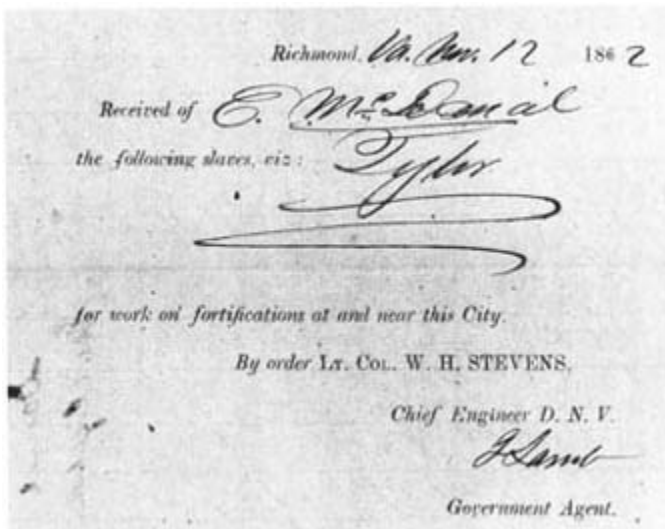 Richmond, Va. Nov. 12 1862
Received of E. McDanial
the following slaves, viz: Tyler
for work on fortifications at and near this City.
By order LT. COL. W. H. STEVENS,
Chief Engineer D. N. V.
Lamb
Government Agent.